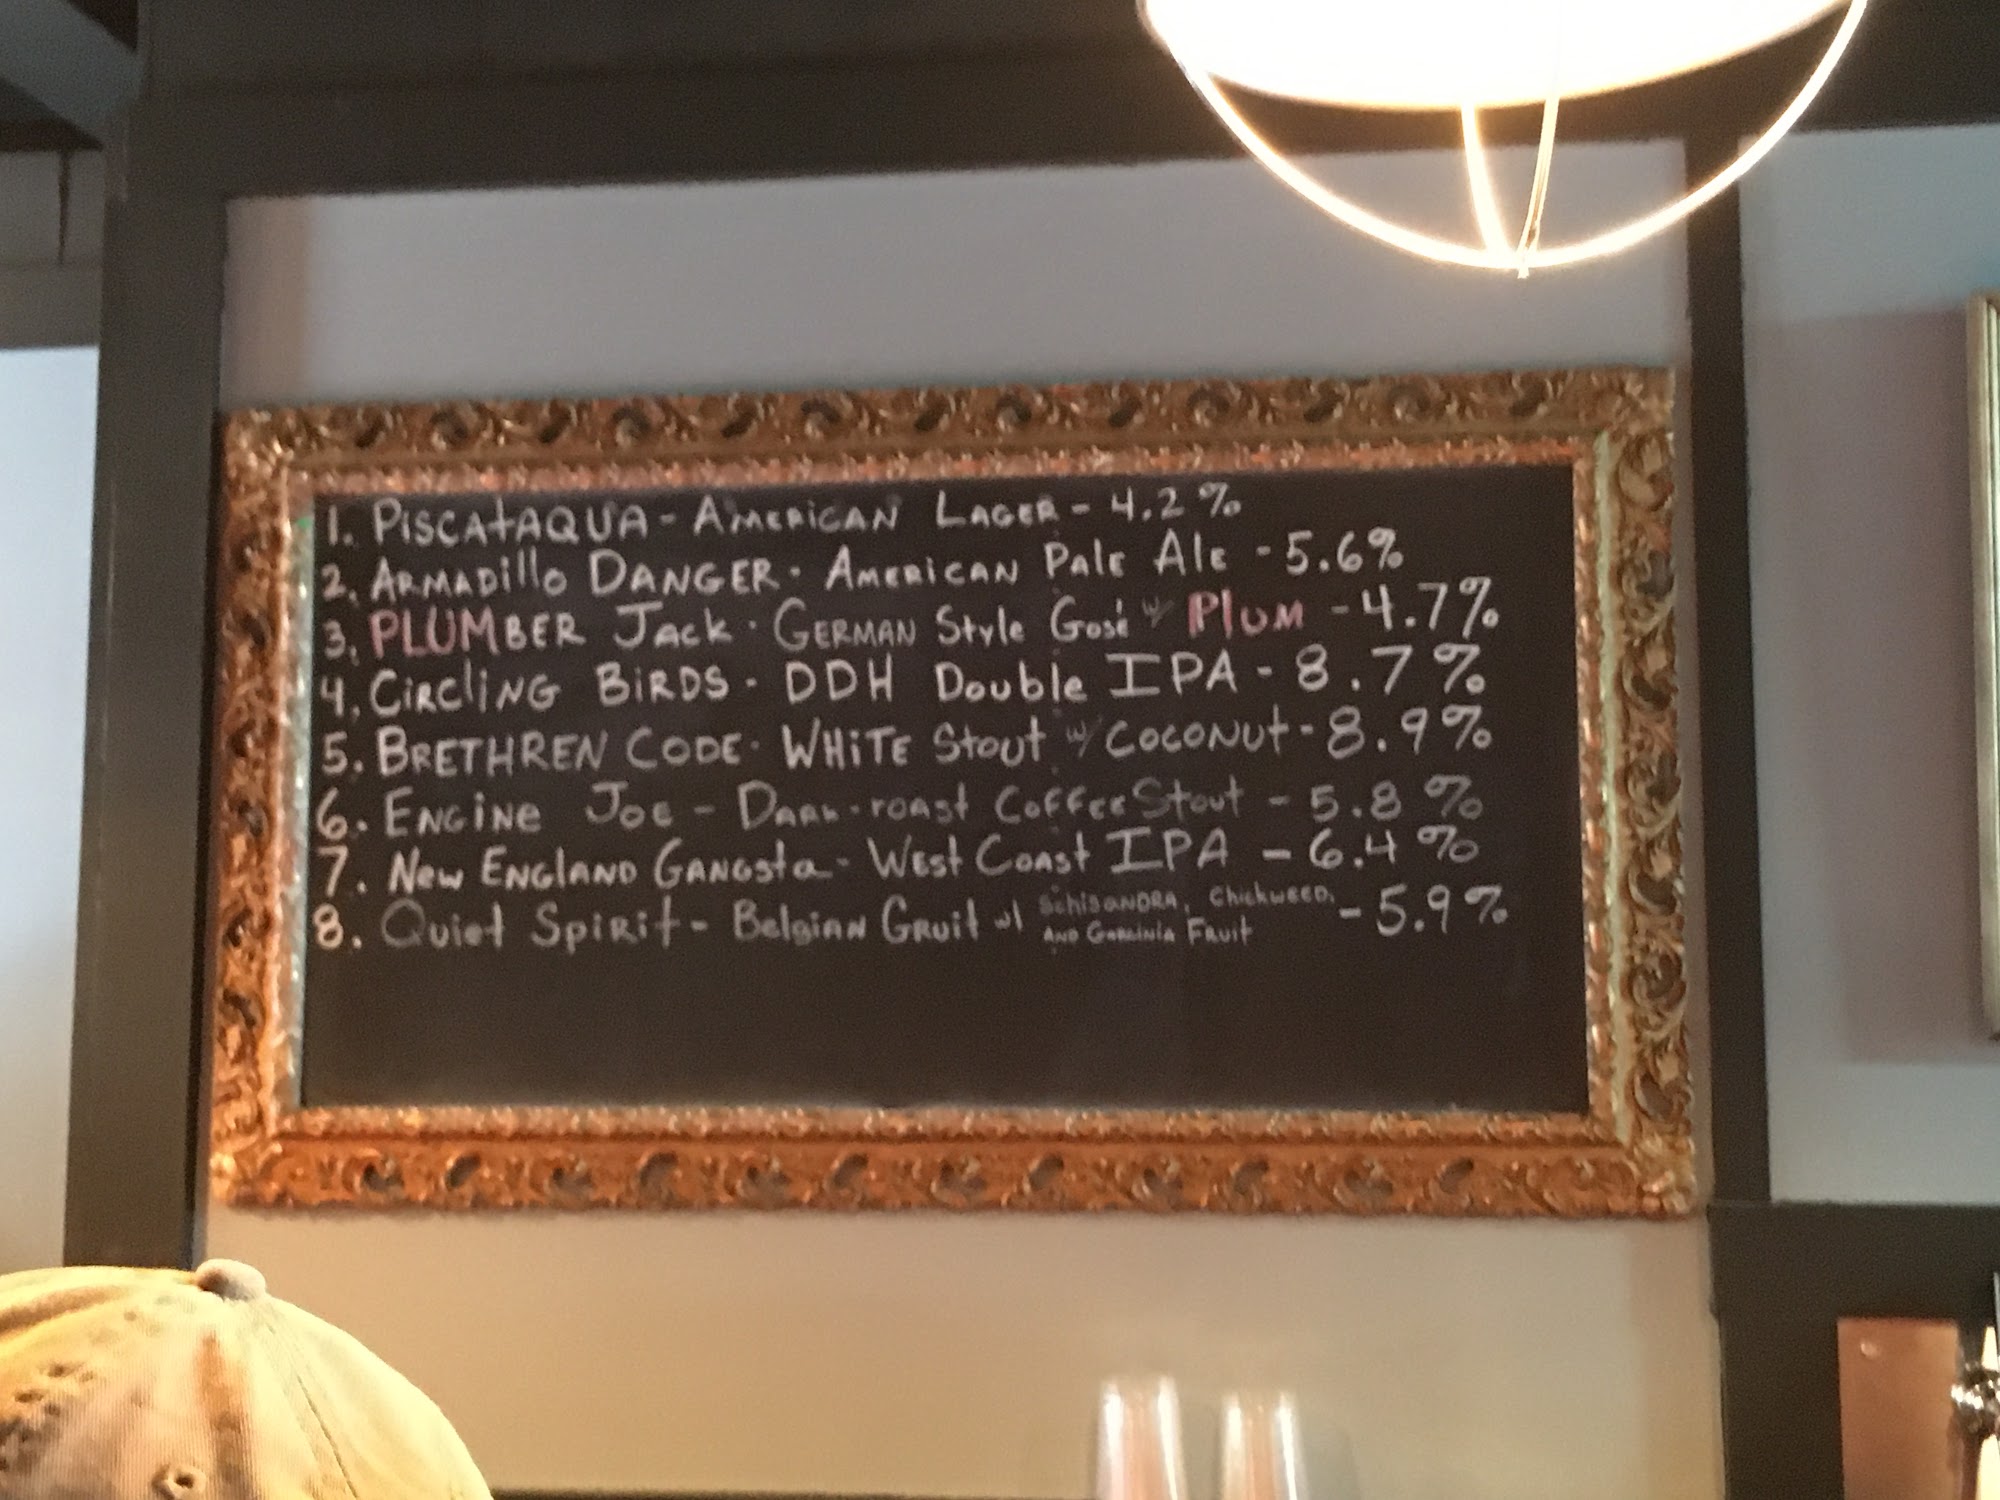 1. PiscatAQUA - American Lager - 4.2%
2. Armadillo Danger - American Pale Ale - 5.6%
3. PLUMBER Jack - German Style Gosé w/ Plum - 4.7%
4. Circling Birds - DDH Double IPA - 8.7%
5. Brethren Code - White Stout w/ Coconut - 8.9%
6. Engine Joe - Dark-roast Coffee Stout - 5.8%
7. New England Gangsta - West Coast IPA - 6.4%
8. Quiet Spirit - Belgian Gruit w/ Schisandra, Chickweed, and Garcinia Fruit - 5.9%